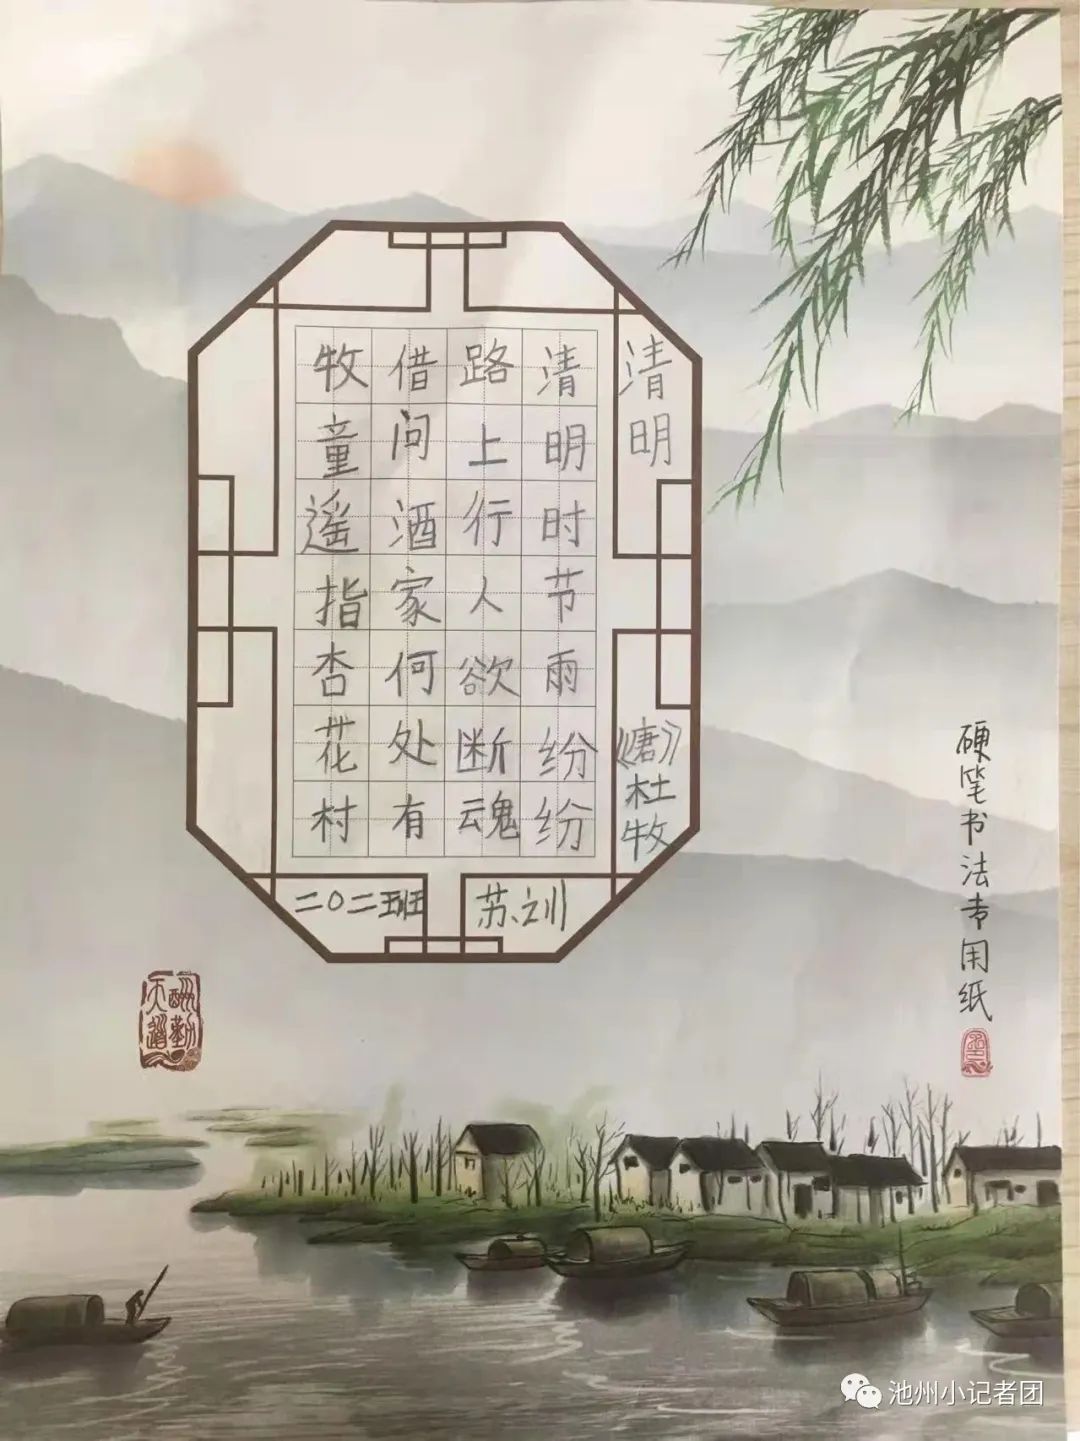 清明
《唐》杜牧
清明时节雨纷纷
路上行人欲断魂
借问酒家何处有
牧童遥指杏花村
二〇二班
苏
硬笔书法专用纸
天道酬勤
池州小记者团